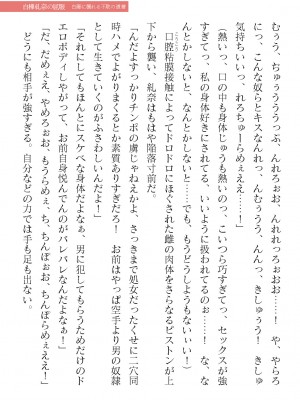 むぅぅ、ちゅううううっっぷ、んれろぉお、んれれっろぉおお……！　や、やらろ
っ……、こんな奴らとキスなんれっ、んむぅうう、んんっ、きしゅう！　きしゅ
気持ちいいっ、れろちゅーらめぇええ……！」
「熱いっ、口の中も身体じゅうも熱いのっ、こいつら巧すぎてっ、セックスが強
すぎて、私の身体好きにされてるっ、いいように扱われてるのぉ……！　な、な
んとかしないと、なんとかしないと……でも、もうどうしようもないぃぃ！）
　口腔粘膜接触によってドロドロにほぐされた雌の肉体をさらなるピストンが上
下から襲い、礼奈はもはや陥落寸前だ。
「んだよすっかりチンポの虜じゃねえかよ、さっきまで処女だったくせに二穴同
時ハメでよがりまくるとか素質ありすぎだろ！　お前はやっぱ空手より男の奴隷
として生きていくのがふさわしいんだよ！」
「それにしてもほんとにスケベな身体だよなぁ、男に犯してもらうためだけのド
エロボディしやがって、お前自身悦んでんのがバレバレなんだよなぁ！」
「だ、だめぇえ、やめろぉお、もうらめぇ、ち、ちんぽぉお、ちんぽらめぇええ！」
　どうにも相手が強すぎる。自分などの力では手も足も出ない。